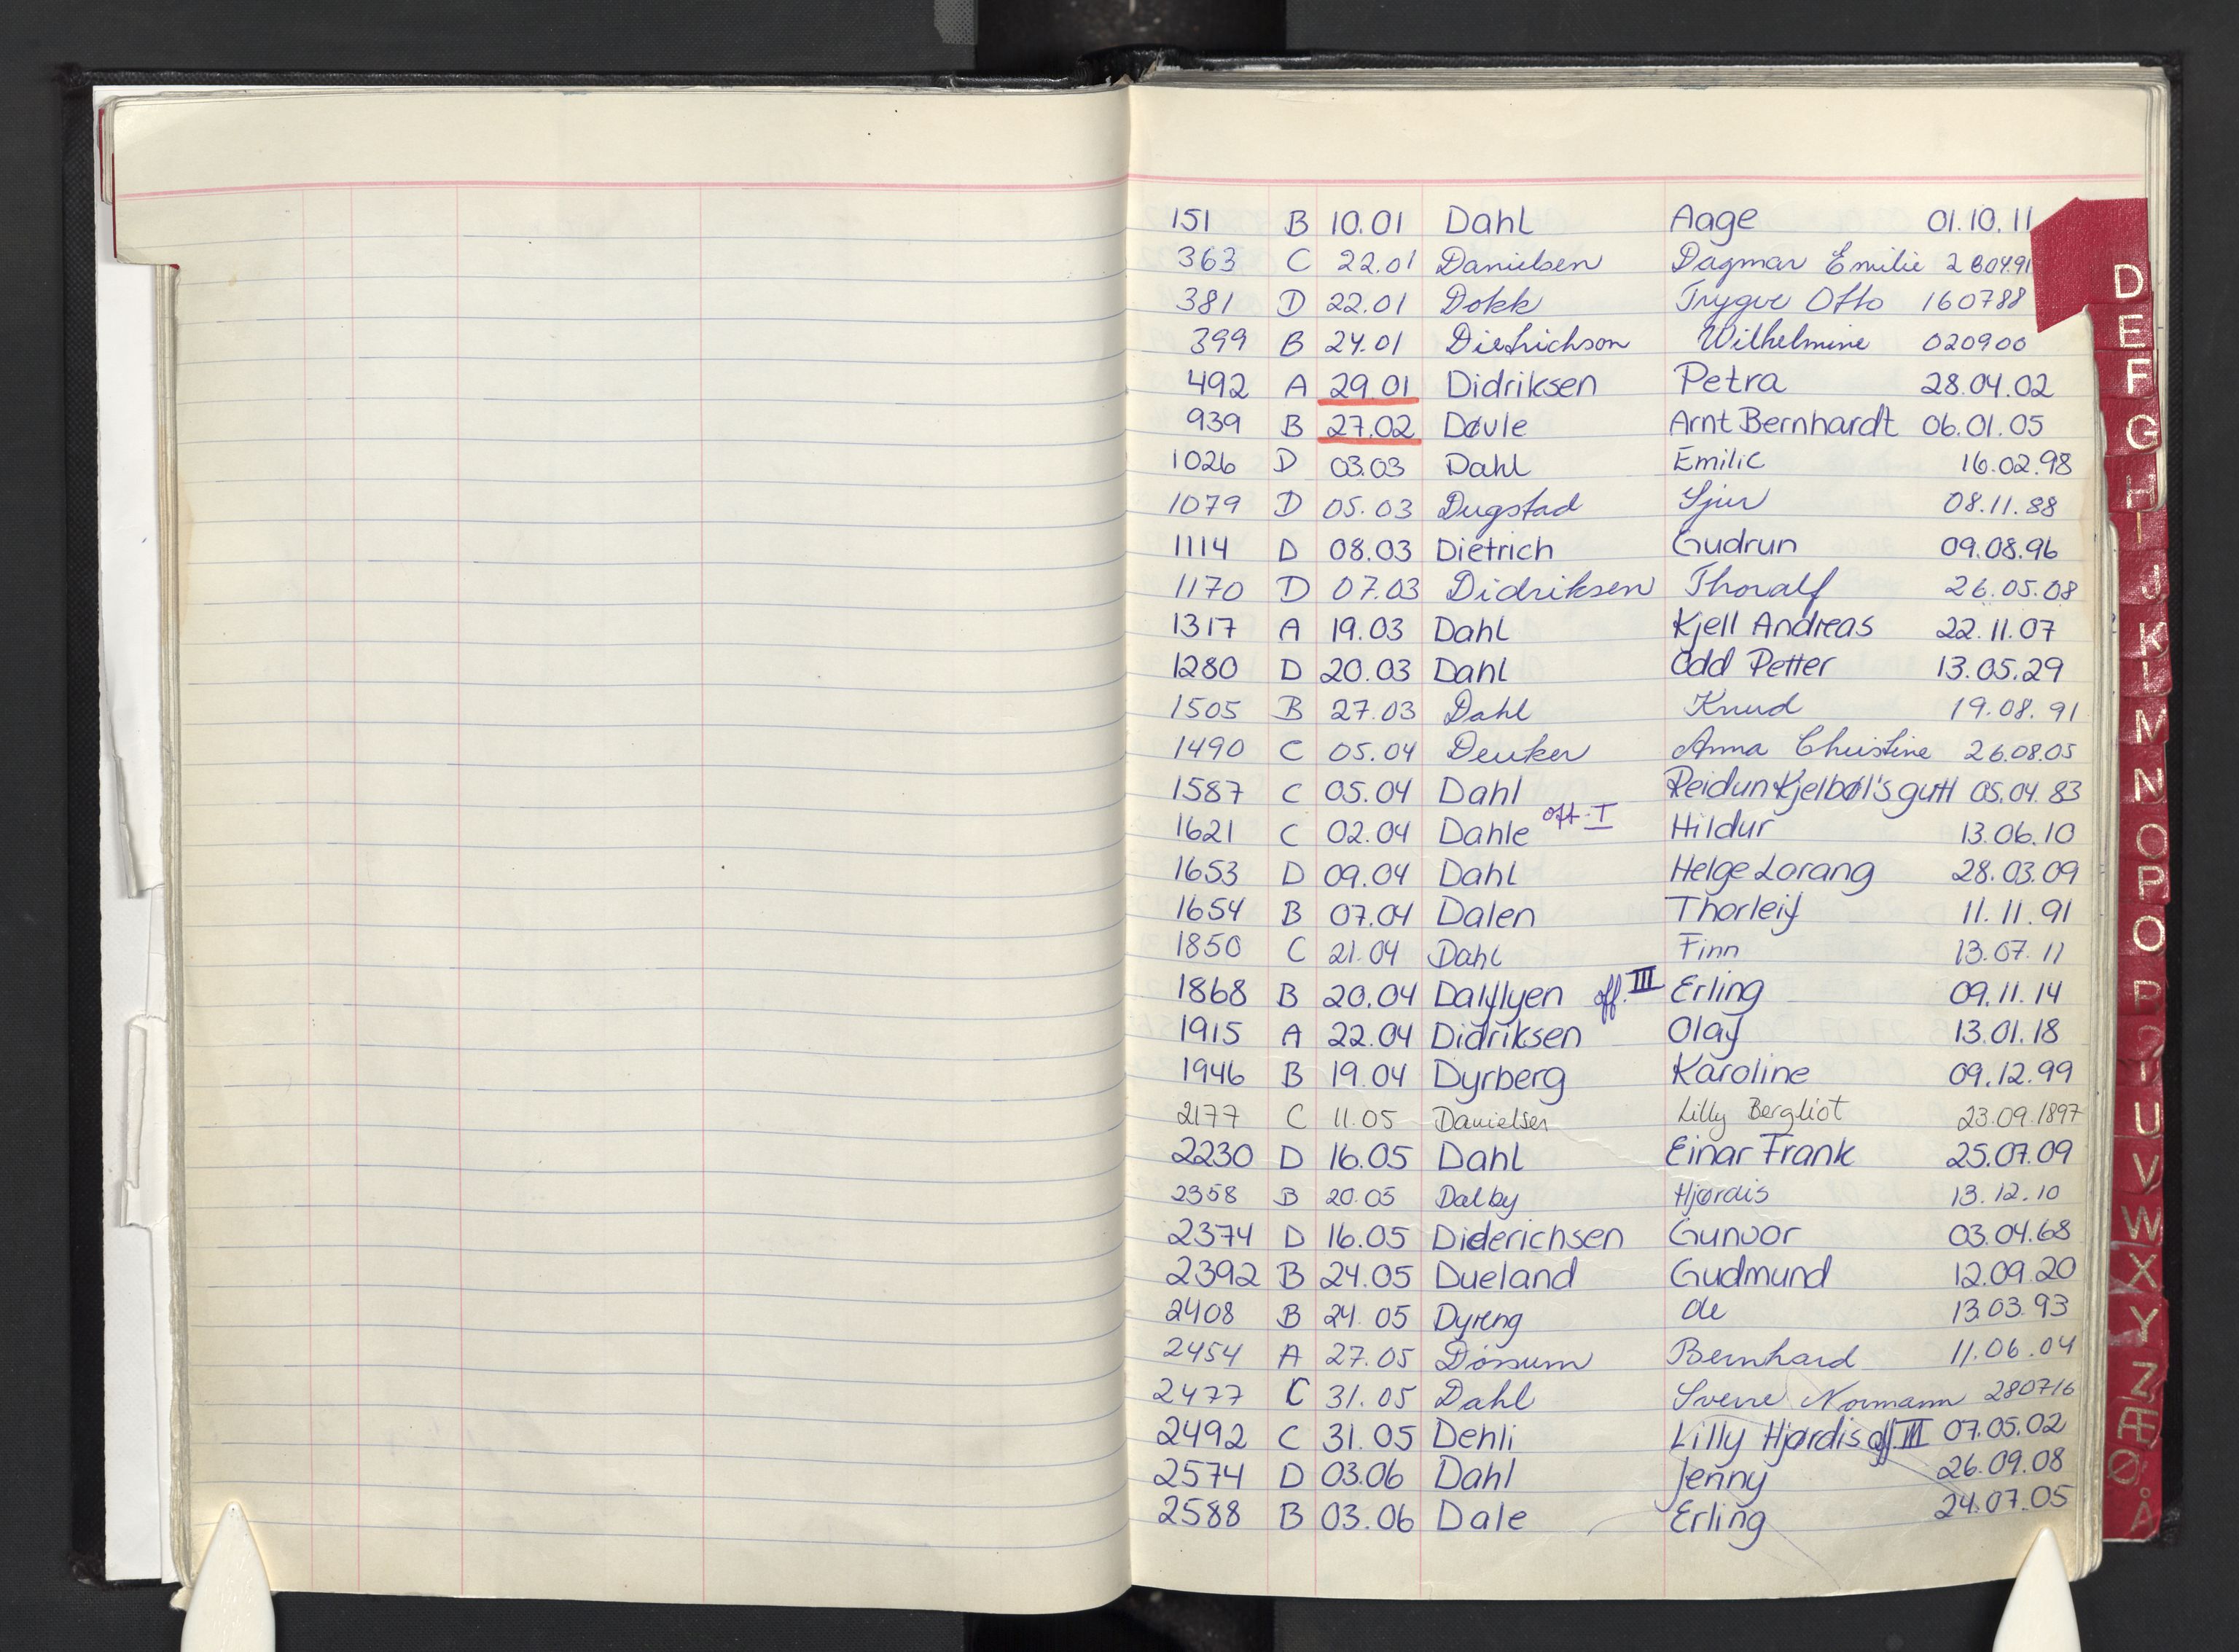 151 B 10.01 Dahl Aage 01.10.11
363 C 22.01 Danielsen Dagmar Emilie 280491
381 D 22.01 Dokk Trygve Otto 160788
399 B 24.01 Dietrichson Wilhelmine 020900
492 A 29.01 Didriksen Petra 28.04.02
939 B 27.02 Døvle Arnt Bernhardt 06.01.05
1026 D 03.03 Dahl Emilie 16.02.98
1079 D 05.03 Dugstad Sjur 08.11.88
1114 D 08.03 Dietrich Gudrun 09.08.96
1170 D 07.03 Didriksen Thoralf 26.05.08
1317 A 19.03 Dahl Kjell Andreas 22.11.07
1280 D 20.03 Dahl Odd Petter 13.05.29
1505 B 27.03 Dahl Knud 19.08.91
1490 C 05.04 Deuker Anna Christine 26.08.05
1587 C 05.04 Dahl Reidun Kjelbøl's gutt 05.04.83
1621 C 02.04 Dahle off. I Hildur 13.06.10
1653 D 09.04 Dahl Helge Lorang 28.03.09
1654 B 07.04 Dalen Thorleif 11.11.91
1850 C 21.04 Dahl Finn 13.07.11
1868 B 20.04 Dalflyen off. III Erling 09.11.14
1915 A 22.04 Didriksen Olaf 13.01.18
1946 B 19.04 Dyrberg Karoline 09.12.99
2177 C 11.05 Danielsen Lilly Bergliot 23.09.1897
2230 D 16.05 Dahl Einar Frank 25.07.09
2358 B 20.05 Dalby Hjørdis 13.12.10
2374 D 16.05 Diderichsen Gunvor 03.04.68
2392 B 24.05 Dueland Gudmund 12.09.20
2408 B 24.05 Dyreng Ole 13.03.93
2454 A 27.05 Dørsum Bernhard 11.06.04
2477 C 31.05 Dahl Sverre Normann 280716
2492 C 31.05 Dehli Lilly Hjørdis off. III 07.05.02
2574 D 03.06 Dahl Jenny 26.09.08
2588 B 03.06 Dale Erling 24.07.05
D
E
F
G
H
I
J
K
L
M
N
O
P
Q
R
S
T
U
V
W
X
Y
Z
Æ
Ø
Å